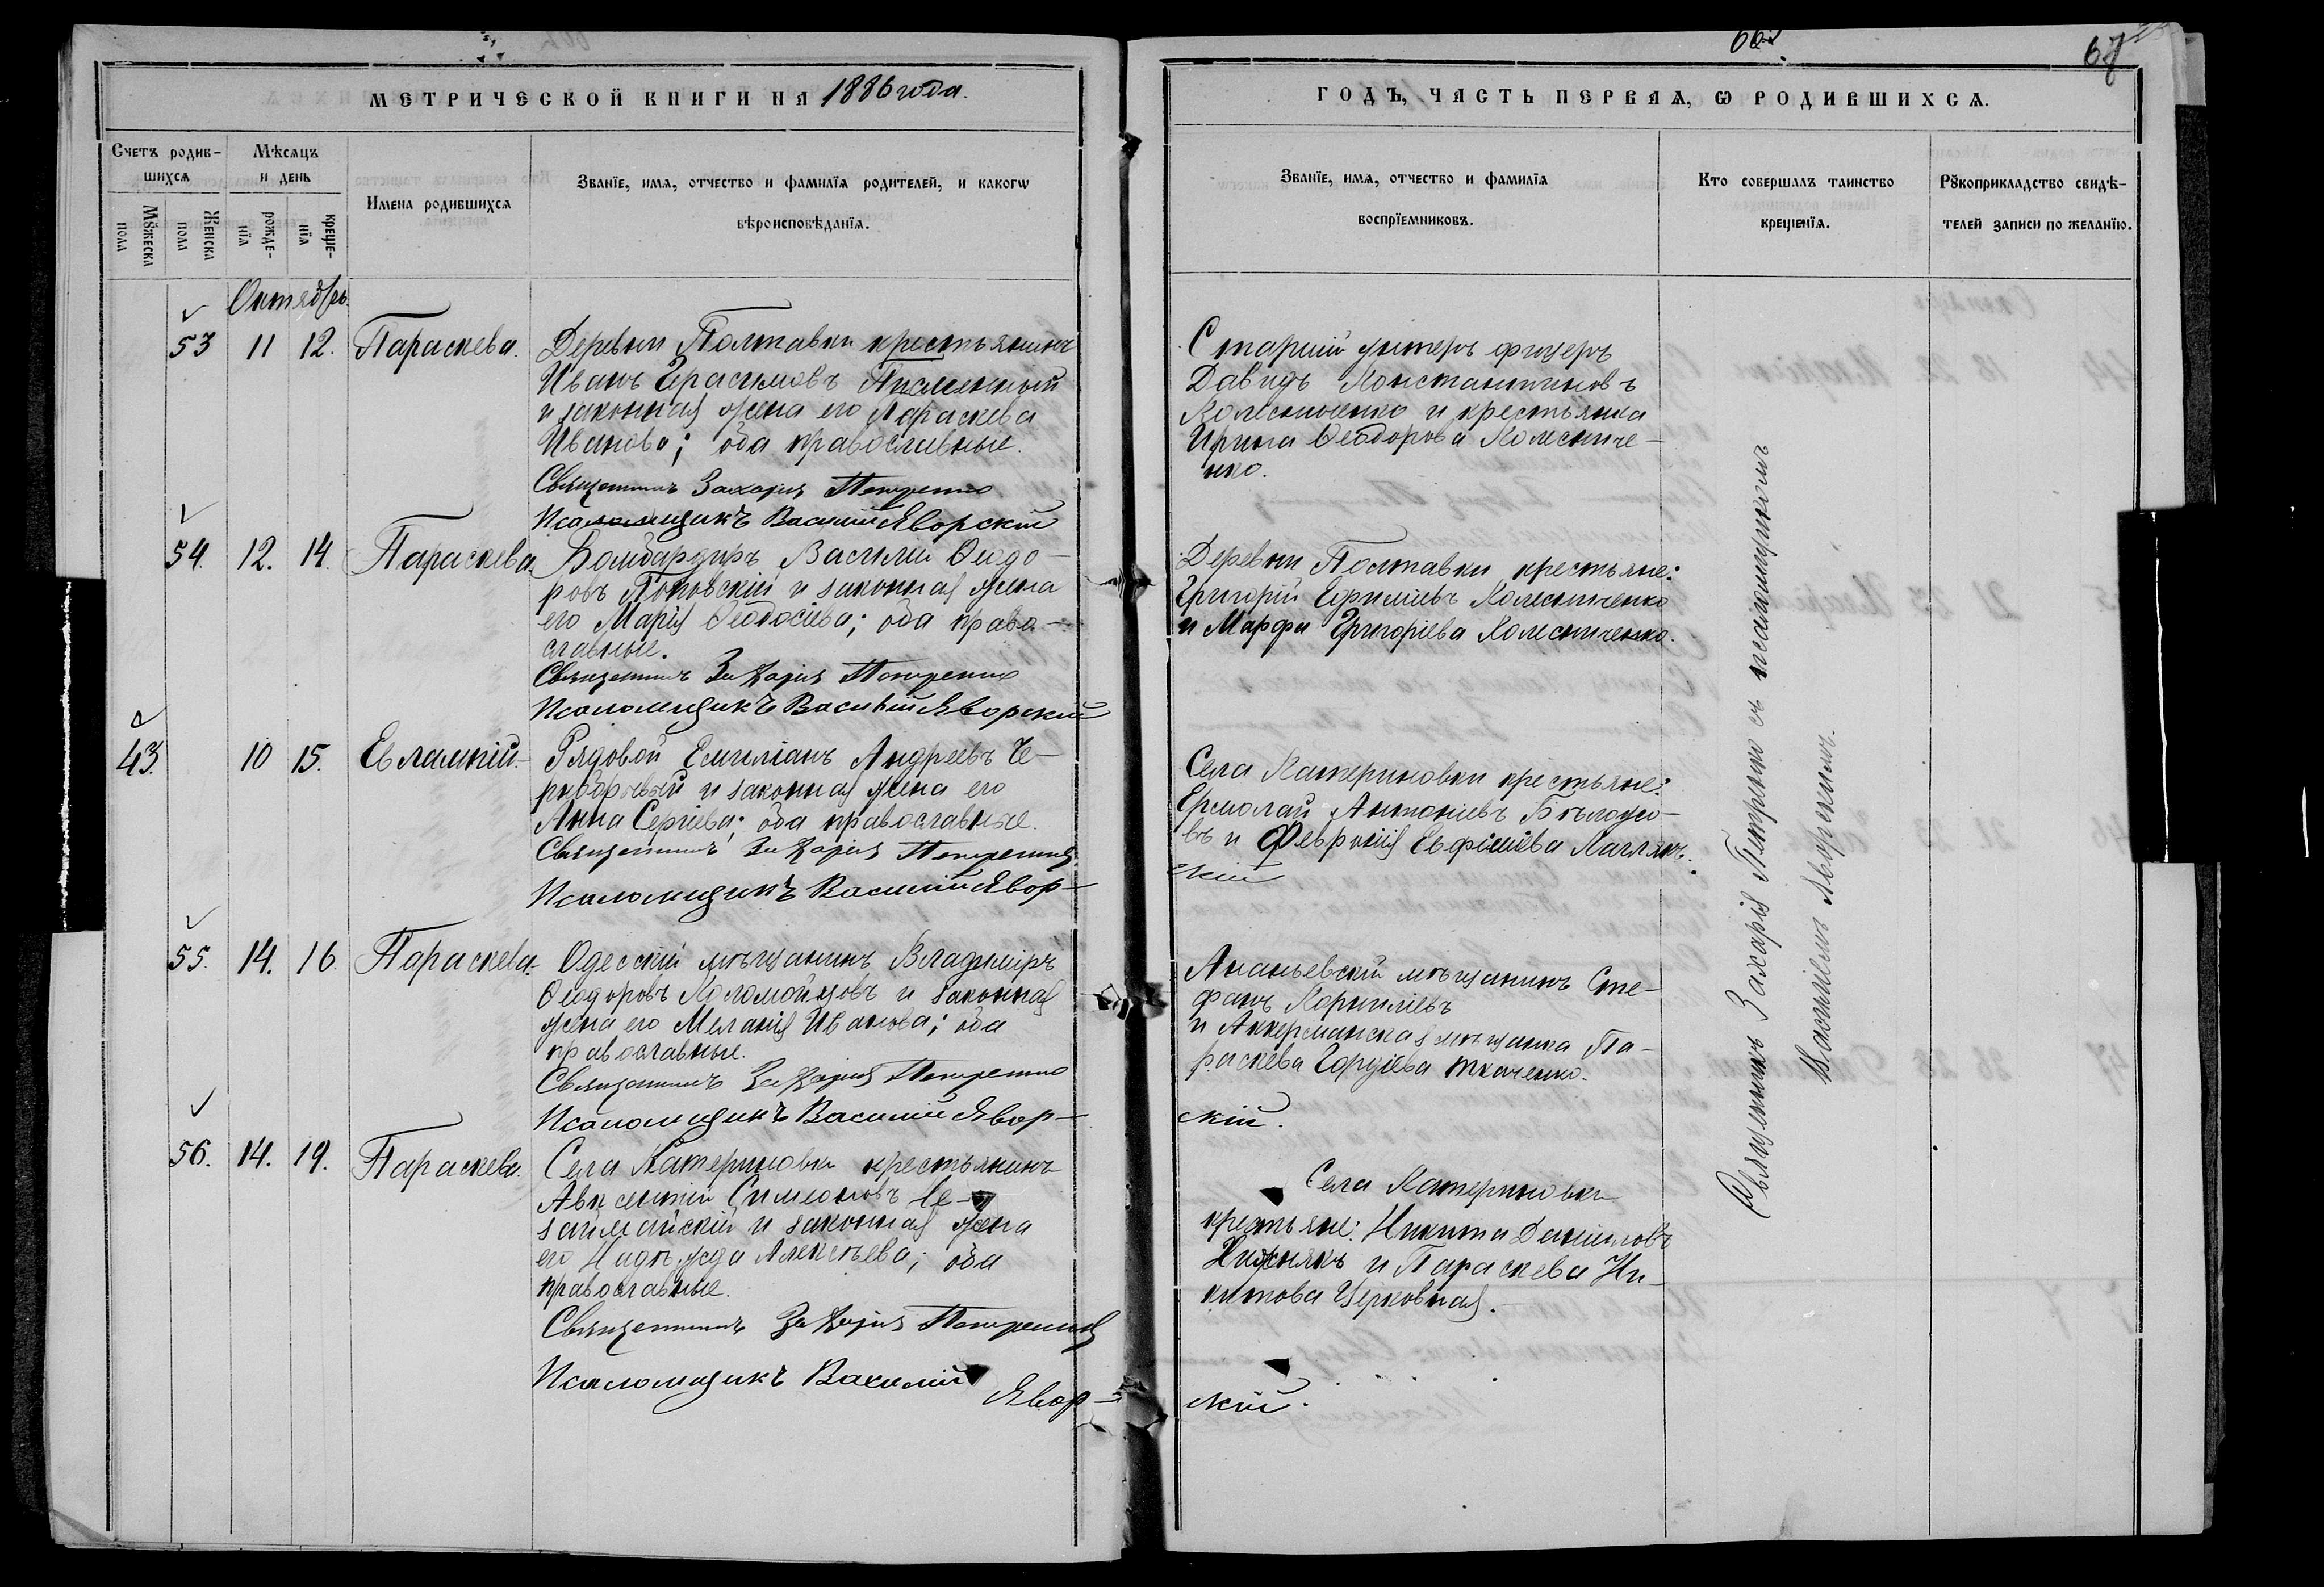 66
67
МЕТРИЧЕСКОЙ КНИГИ НА 1886 года.
ГОДЪ, ЧАСТЬ ПЕРВАЯ, Ѡ РОДИВШИХСѦ.
Счетъ родив-
шихсѧ
Мѣсѧцъ
и день
Имена родившихсѧ
Званїе, имѧ, отчество и фамилїѧ родителей, и какогѡ
вѣроисповѣданїѧ.
Мꙋжеска
пола
Женска
пола
рожде-
нїѧ
креще-
нїѧ
Званїе, имѧ, отчество и фамилїѧ
воспрїемниковъ.
Кто совершалъ таинство
крещенїѧ.
Рꙋкоприкладство свидѣ-
телей записи по желанїю.
Октябрь
53 11 12. Параскева.
Деревни Полтавки крестьянинъ
Иванъ Герасимовъ Письменный
и законная жена его Параскева
Иванова; оба православные.
Священникъ Захарія Петренко
Псаломщикъ Василій Яворскій
Старший унтеръ фицеръ
Давидъ Константиновъ
Колесниченко и крестьянка
Ирина Ѳеодорова Колесниче-
нко.
54. 12. 14. Параскева.
Бомбардиръ Василий Ѳеодо-
ровъ Поповскій и законная жена
его Марія Ѳеодосіева; оба право-
славные.
Священникъ Захарія Петренко
Псаломщикъ Василій Яворскій
Деревни Полтавки крестьяне:
Григорій Ефиміевъ Колесниченко
и Марфа Григоріева Колесниченко.
43. 10 15. Евлампій.
Рядовой Емиліанъ Андреевъ Че-
и законная жена его
Анна Сергіева; оба православные.
Священникъ Захарія Петренко
Псаломщикъ Василій Явор-
скій
Села Катериновки крестьяне:
Ермолай Антоніевъ Бѣлоусо-
въ и Февронія Евфиміева
55. 14. 16. Параскева.
Одесскій мѣщанинъ Владиміръ
Ѳеодоровъ Коломойцовъ и законная
жена его Меланія Иванова; оба
православные.
Священникъ Захарія Петренко
Псаломщикъ Василій Явор-
скій.
Ананьевскій мѣщанинъ Сте-
фанъ Корниліевъ
и Аккерманская мѣщанка Па-
раскева Гордіева Ткаченко.
56. 14. 19. Параскева.
Села Катериновки крестьянинъ
Авксентій Симеоновъ Че-
и законная жена
его Надежда Алексѣева; оба
православные.
Священникъ Захарія Петренко
Псаломщикъ Василій
Явор-
скій.
Села Катериновки
крестьяне: Никита Даниловъ
Нижникъ и Параскева Ни-
китова Церковная.
Священникъ Захарія Петренко съ псаломщикомъ
Василіемъ Яворскимъ.